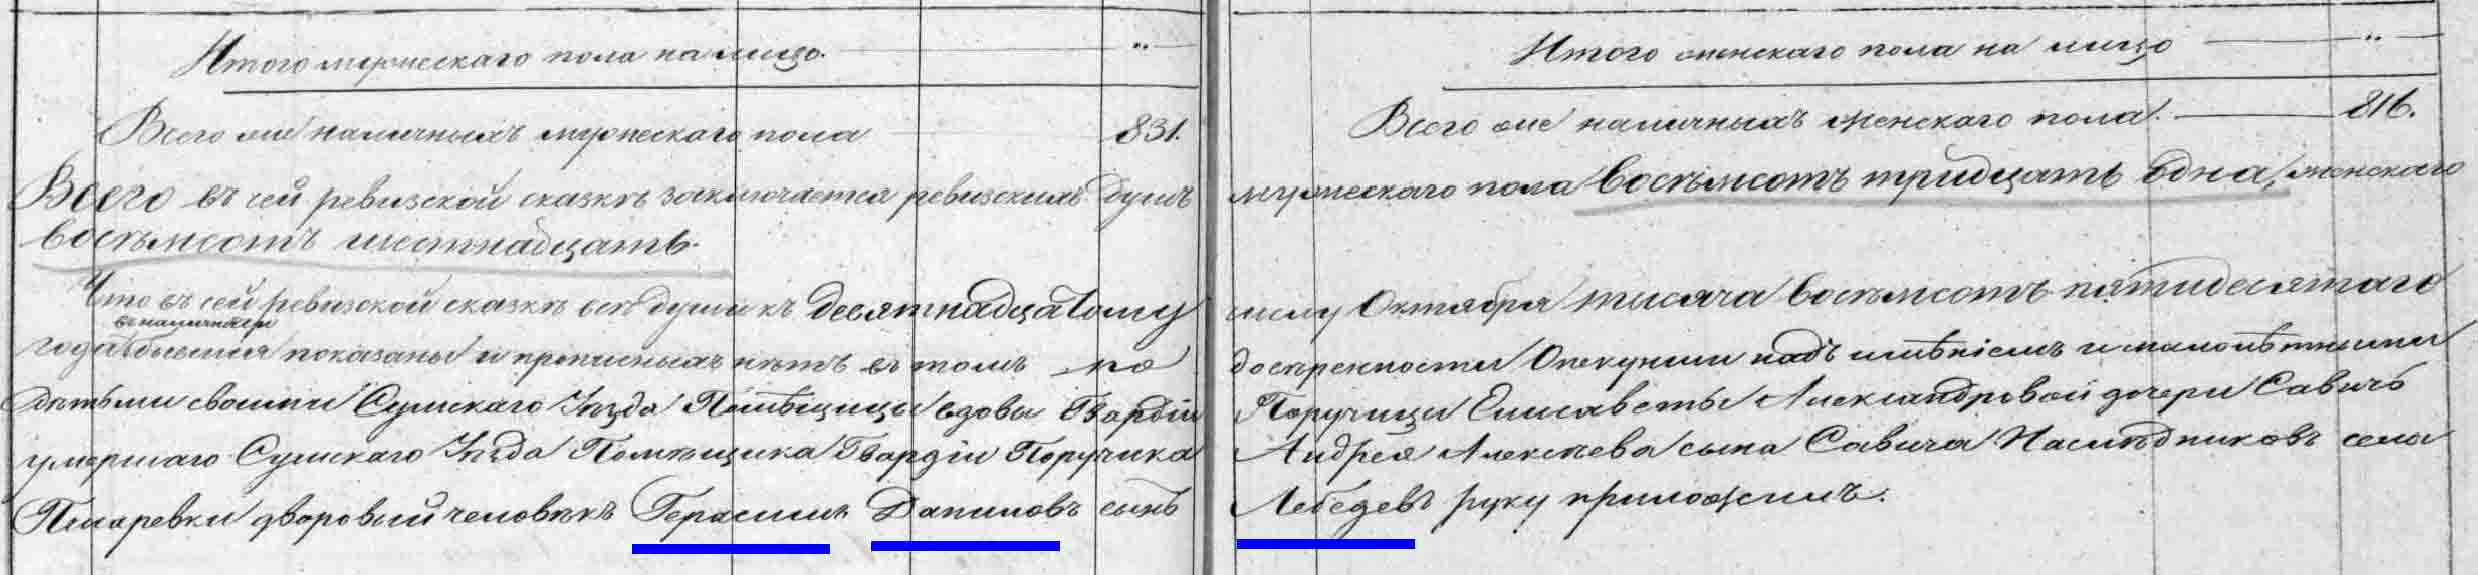 Итого мужескаго пола на лицо. „
Итого женскаго пола на лицо „
Всего же наличныхъ мужескаго пола 831.
Всего же наличныхъ женскаго пола. 816.
Всего въ сей ревизской сказкѣ заключается ревизскихъ душъ мужескаго пола восѣмсотъ тридцать одна, женскаго
восѣмсотъ шестнадцать.
Что въ сей ревизской сказкѣ всѣ души къ десятнадцатому числу Октября тысяча восѣмсотъ пятидесятаго
въ наличности
года бывшія показаны и прописныхъ нѣтъ въ томъ по довѣренности Опекунши надъ имѣніемъ и малолѣтними
дѣтьми своими Сумскаго Уѣзда Помѣщицы вдовы Гвардіи Поручицы Елисаветы Александровой дочери Савичъ
умершаго Сумскаго Уѣзда Помѣщика Гвардіи Поручика Андрея Алексѣева сына Савича Наслѣдниковъ села
Писаревки дворовый человѣкъ Герасимъ Даниловъ сынъ Лебедевъ руку приложилъ.